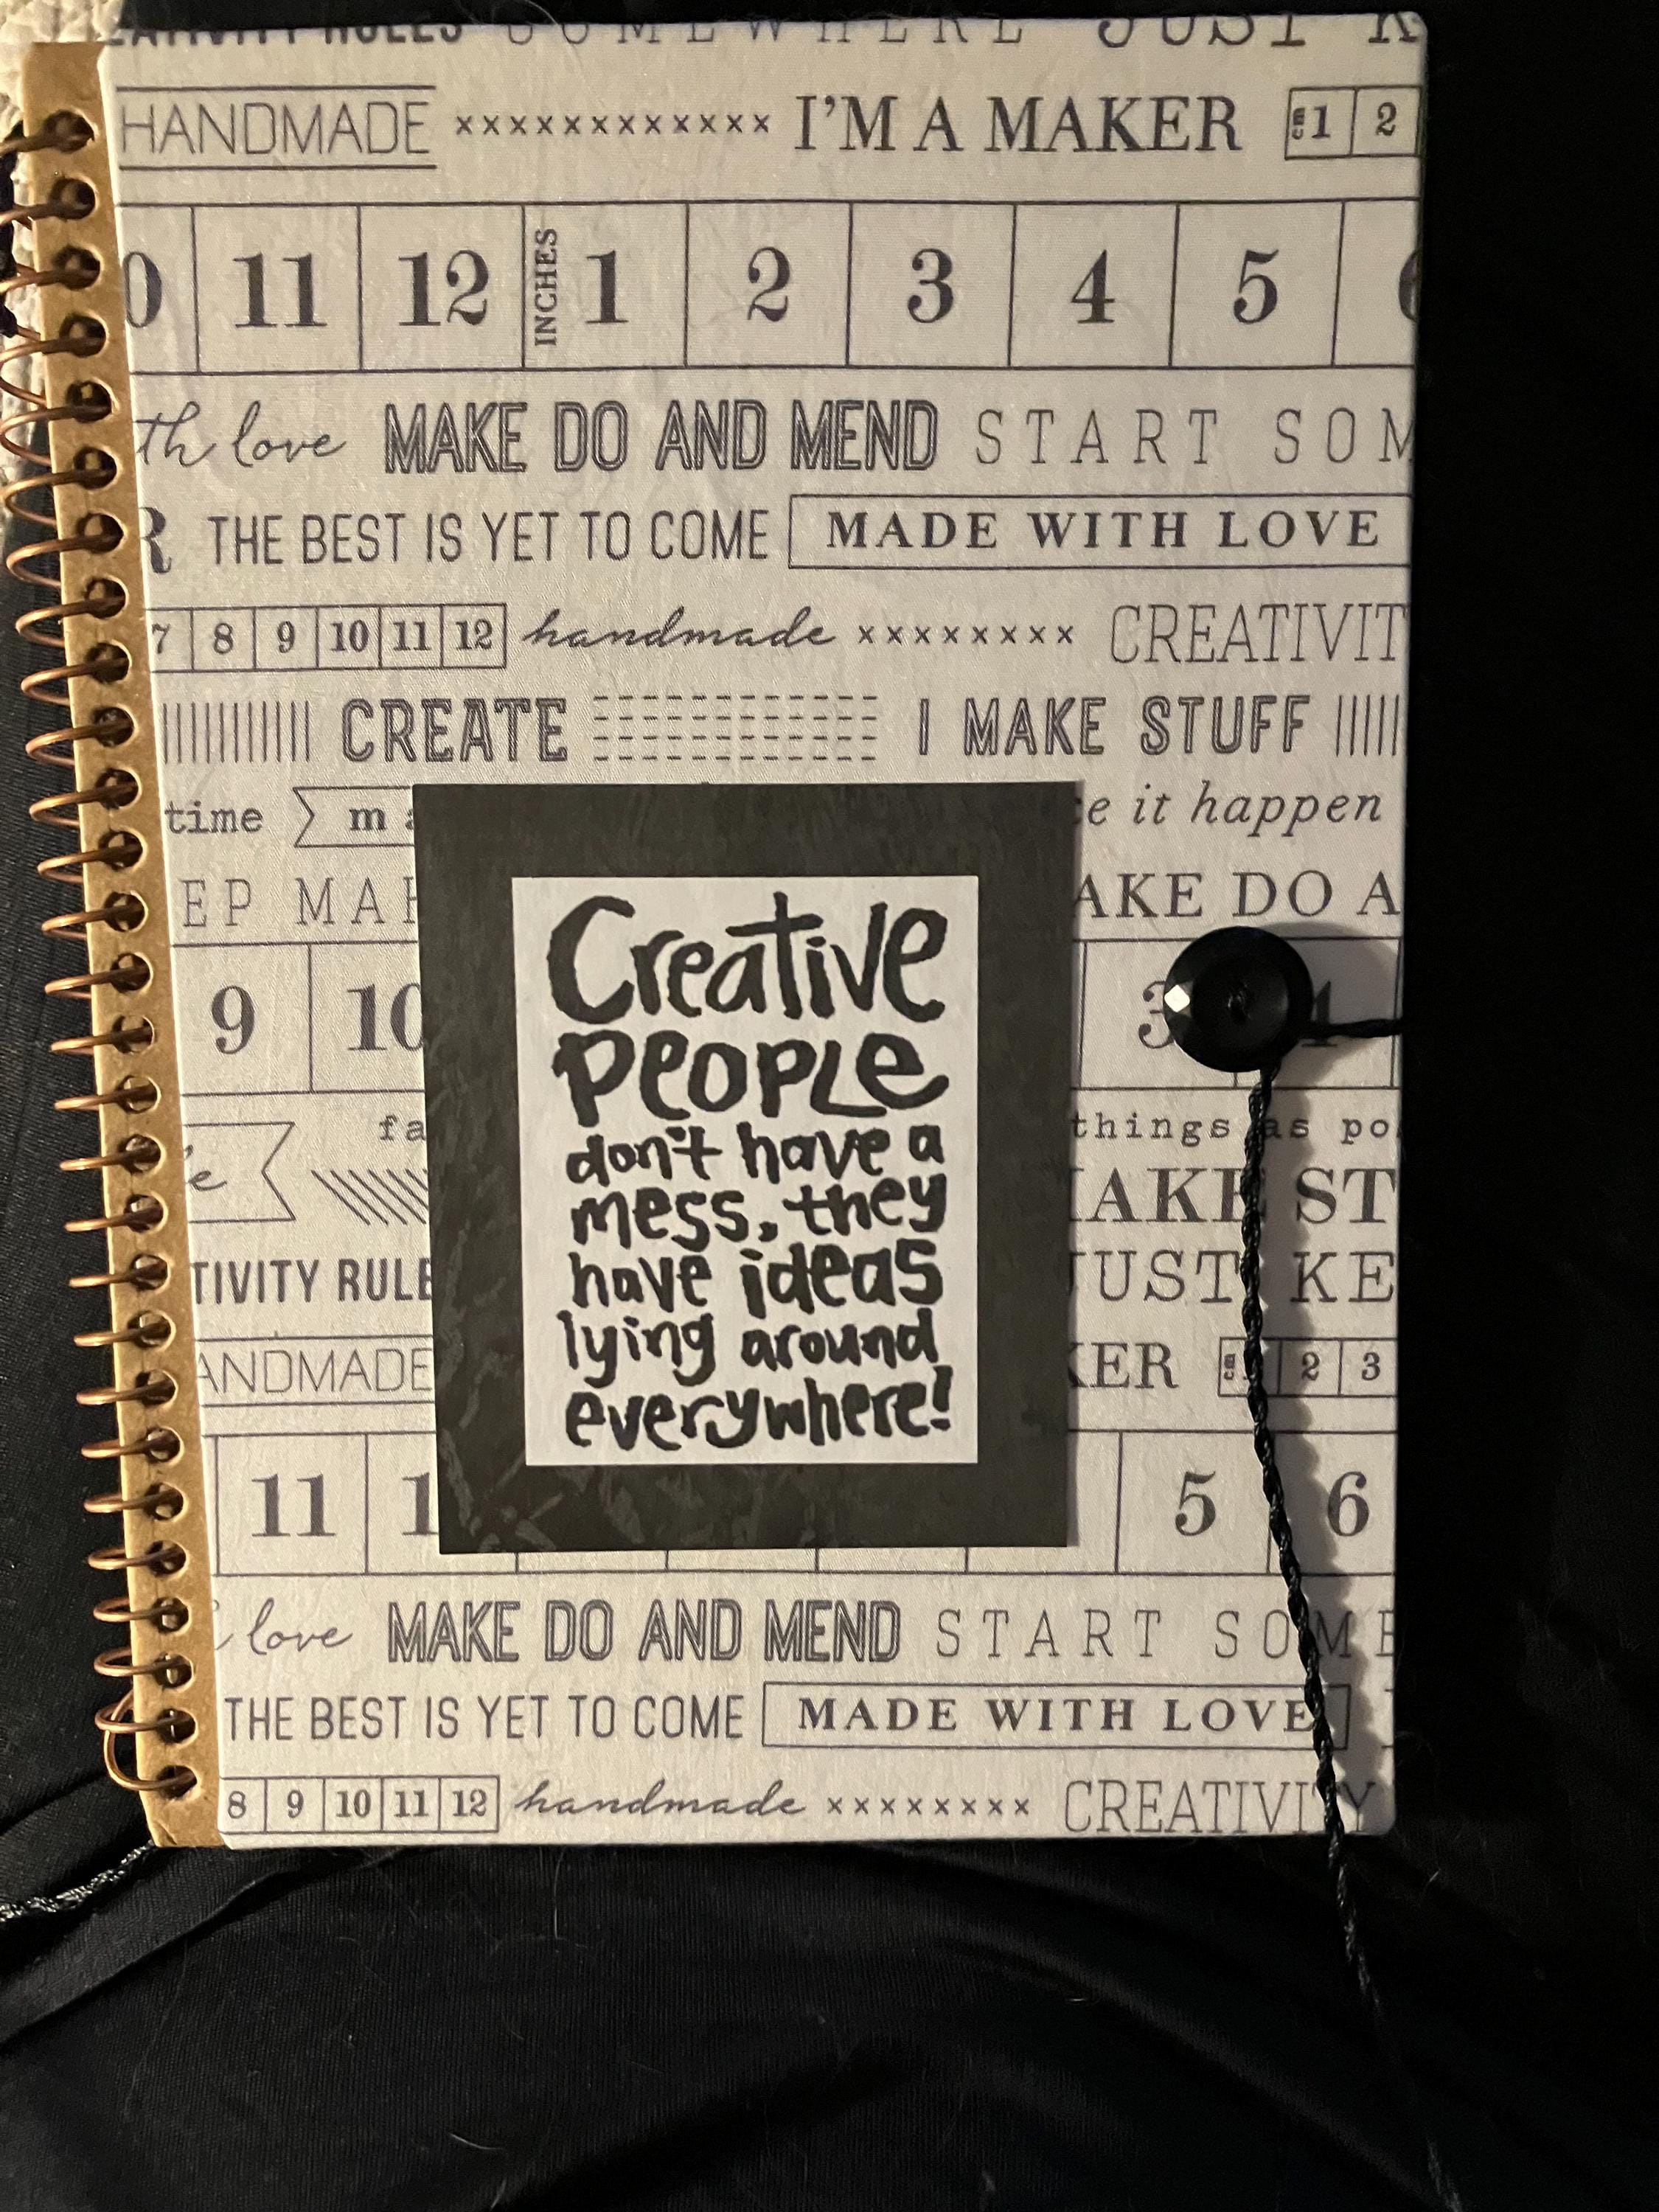 RULES SOMEWHERE JUST
HANDMADE xxxxxxxxxxxx I'M A MAKER cm 1 2
0 11 12 INCHES 1 2 3 4 5 6
th love MAKE DO AND MEND START SOM
R THE BEST IS YET TO COME MADE WITH LOVE
7 8 9 10 11 12 handmade xxxxxxxx CREATIVIT
CREATE I MAKE STUFF
time m e it happen
EP MA AKE DO A
9 10 3 4
fa things as po
e AKE ST
TIVITY RULE JUST KE
ANDMADE KER cm 1 2 3
11 1 5 6
love MAKE DO AND MEND START SOME
THE BEST IS YET TO COME MADE WITH LOVE
8 9 10 11 12 handmade xxxxxxxx CREATIVITY
Creative
PEOPLE
don't have a
mess, they
have ideas
lying around
everywhere!